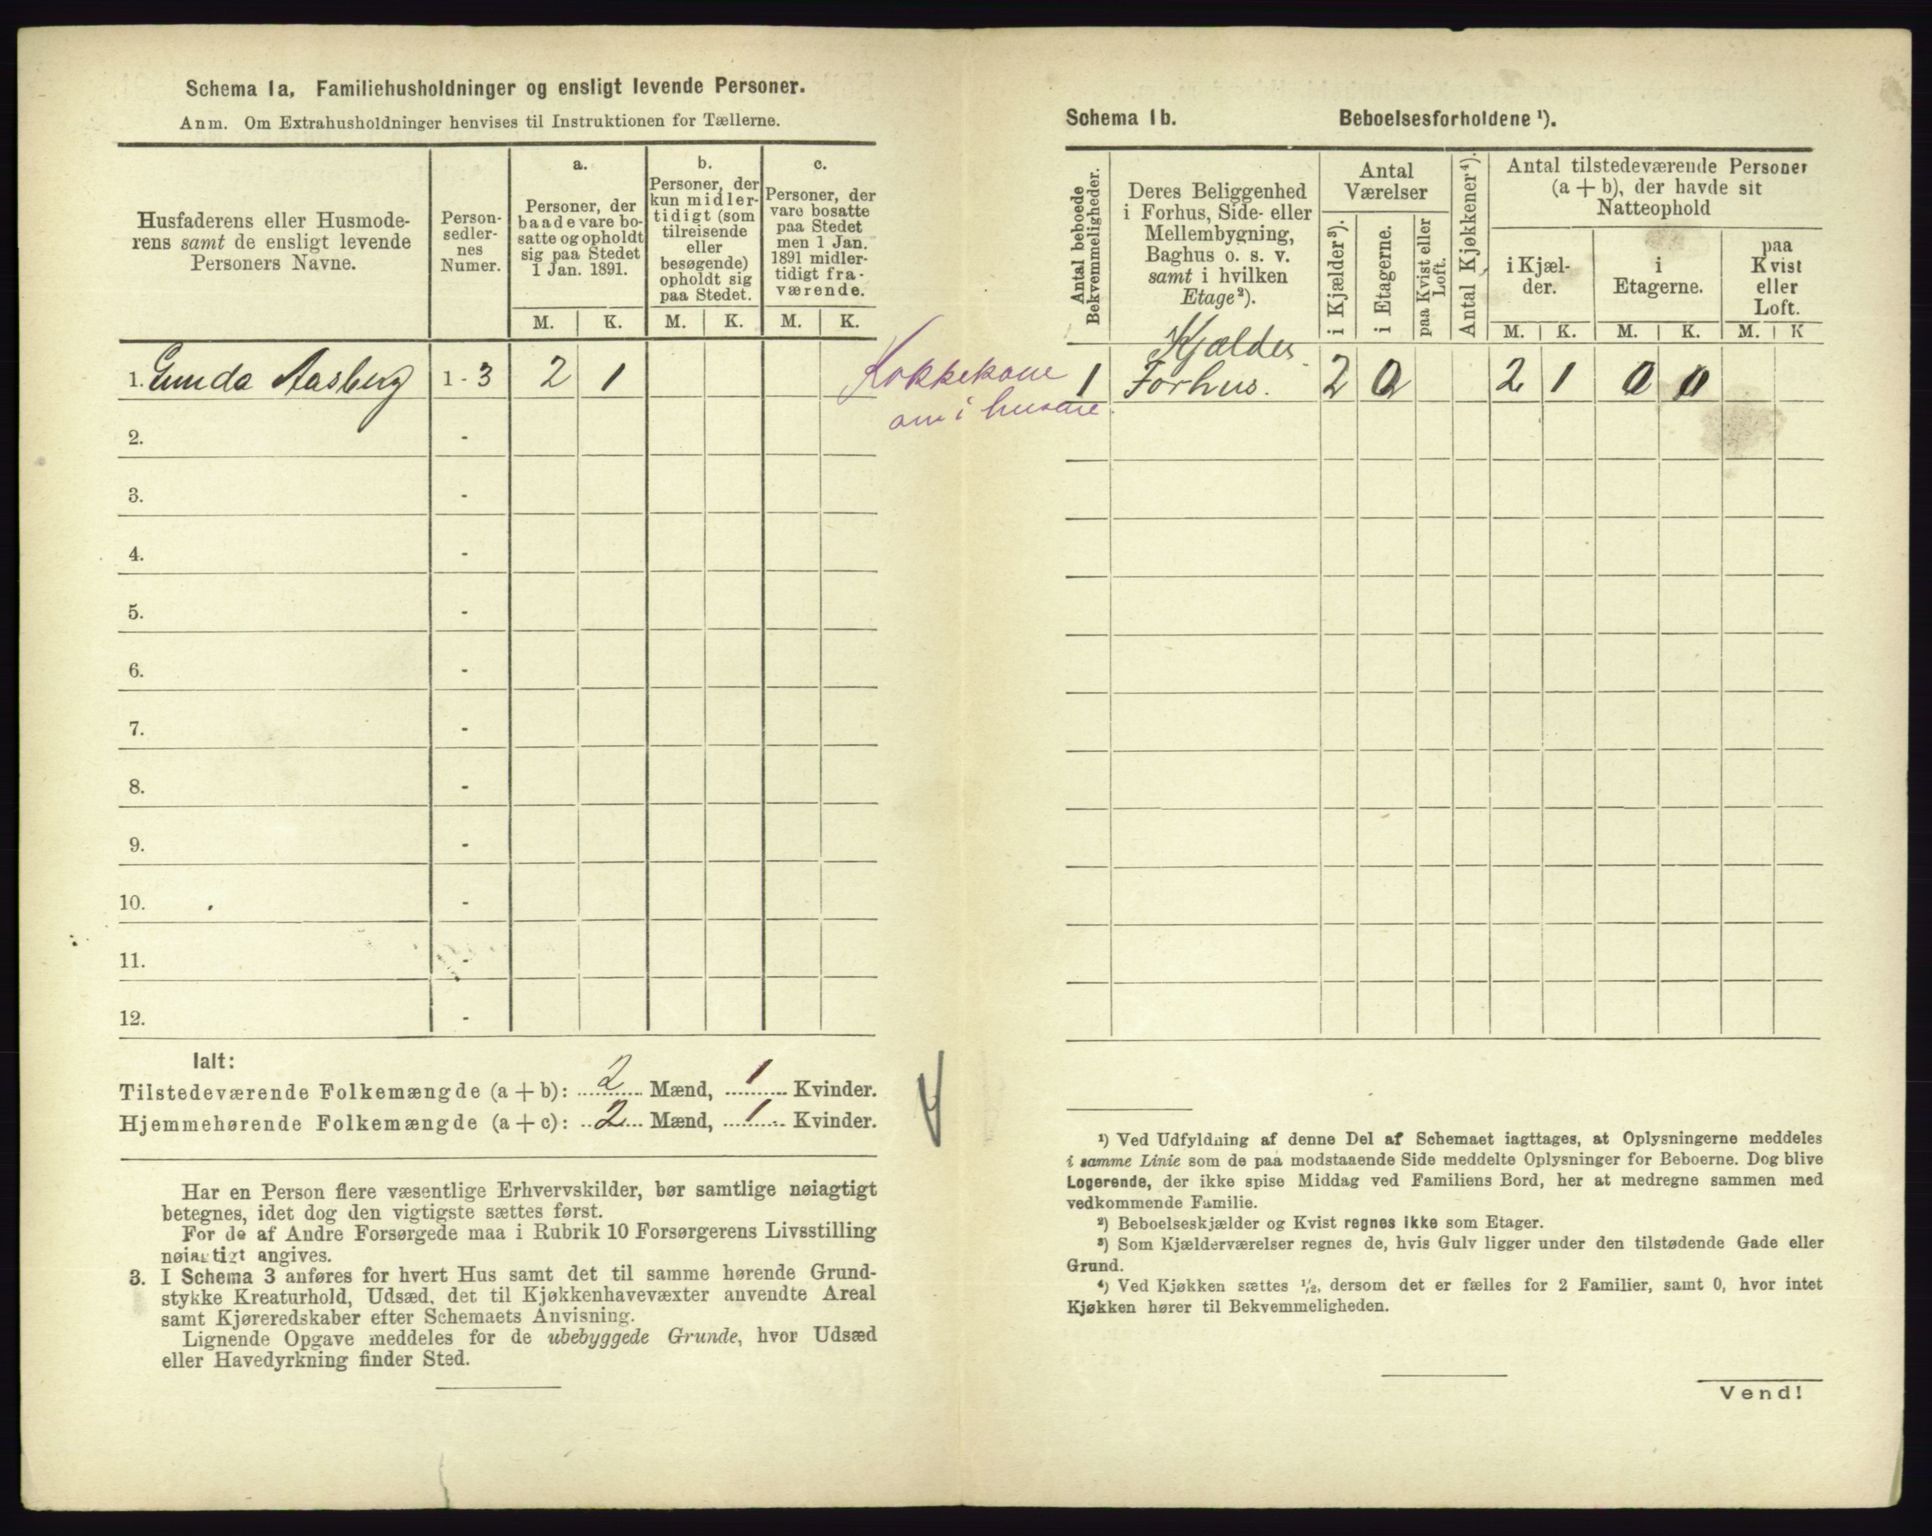 Schema 1a. Familiehusholdninger og ensligt levende Personer.
Anm. Om Extrahusholdninger henvises til Instruktionen for Tællerne.
Husfaderens eller Husmode-
rens samt de ensligt levende
Personers Navne.
Person-
sedler-
nes
Numer.
a.
Personer, der
baade vare bo-
satte og opholdt
sig paa Stedet
1 Jan. 1891.
b.
Personer, der
kun midler-
tidigt (som
tilreisende
eller
besøgende)
opholdt sig
paa Stedet.
c.
Personer, der
vare bosatte
paa Stedet
men 1 Jan.
1891 midler-
tidigt fra-
værende.
M. K. M. K. M. K.
1. Gunda Aasberg 1 - 3 2 1
Kokkekone
om i husene.
2. -
3. -
4. -
5. -
6. -
7. -
8. -
9. -
10. -
11. -
12. -
Ialt:
Tilstedeværende Folkemængde (a + b): 2 Mænd, 1 Kvinder.
Hjemmehørende Folkemængde (a + c): 2 Mænd, 1 Kvinder.
Har en Person flere væsentlige Erhvervskilder, bør samtlige nøiagtigt
betegnes, idet dog den vigtigste sættes først.
For de af Andre Forsørgede maa i Rubrik 10 Forsørgerens Livsstilling
nøiagtigt angives.
3. I Schema 3 anføres for hvert Hus samt det til samme hørende Grund-
stykke Kreaturhold, Udsæd, det til Kjøkkenhavevæxter anvendte Areal
samt Kjøreredskaber efter Schemaets Anvisning.
Lignende Opgave meddeles for de ubebyggede Grunde, hvor Udsæd
eller Havedyrkning finder Sted.
Schema 1b. Beboelsesforholdene ¹).
Antal beboede
Bekvemmeligheder.
Deres Beliggenhed
i Forhus, Side- eller
Mellembygning,
Baghus o. s. v.
samt i hvilken
Etage²).
Antal
Værelser
i Kjælder³).
i Etagerne.
paa Kvist eller
Loft.
Antal Kjøkkener⁴).
Antal tilstedeværende Personer
(a + b), der havde sit
Natteophold
i Kjæl-
der.
i
Etagerne.
paa
Kvist
eller
Loft.
M. K. M. K. M. K
Kjælder
1 Forhus. 2 0 2 1 0 0
¹) Ved Udfyldning af denne Del af Schemaet iagttages, at Oplysningerne meddeles
i samme Linie som de paa modstaaende Side meddelte Oplysninger for Beboerne. Dog blive
Logerende, der ikke spise Middag ved Familiens Bord, her at medregne sammen med
vedkommende Familie.
²) Beboelseskjælder og Kvist regnes ikke som Etager.
³) Som Kjælderværelser regnes de, hvis Gulv ligger under den tilstødende Gade eller
Grund.
⁴) Ved Kjøkken sættes ½, dersom det er fælles for 2 Familier, samt 0, hvor intet
Kjøkken hører til Bekvemmeligheden.
Vend!